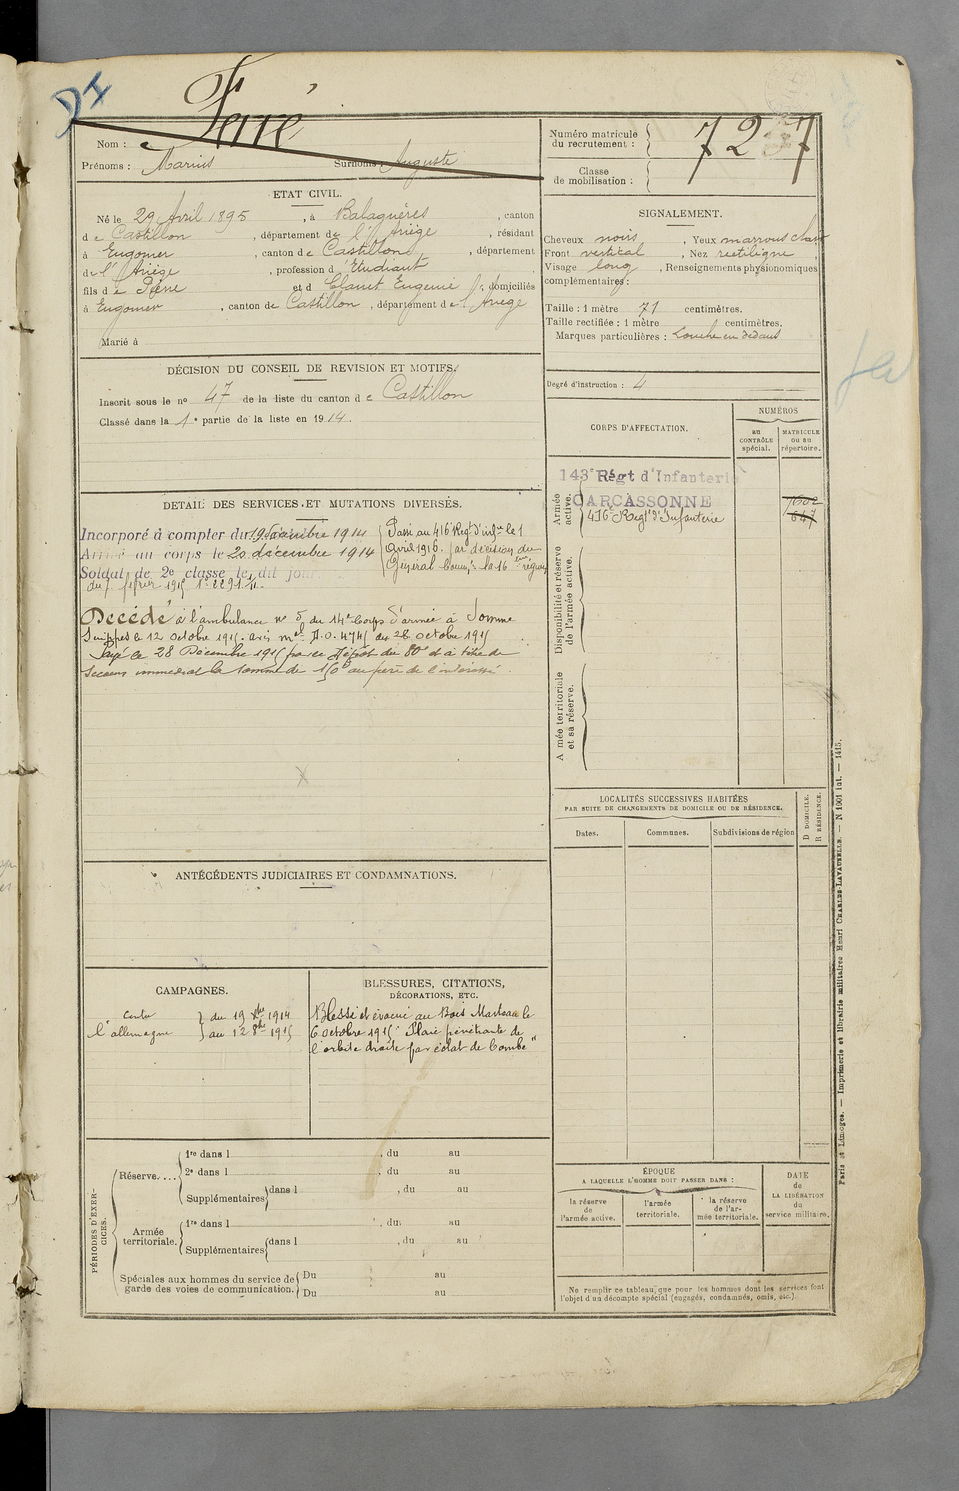 DI
Ferré
Nom :
Prénoms : Marius Surnoms : Auguste
Numéro matricule
du recrutement : 7237
Classe
de mobilisation :
ETAT CIVIL.
Né le 29 Avril 1895, à Balaguères, canton
de Castillon, département de l'Ariège, résidant
à Engomer, canton de Castillon, département
de l'Ariège, profession d'Etudiant
fils de Pierre et d Clanet Eugenie, domiciliés
à Engomer, canton de Castillon, département de l'Ariege
Marié à
SIGNALEMENT.
Cheveux noirs, Yeux marrons
Front vertical, Nez rectiligne,
Visage long, Renseignements physionomiques
complémentaires :
Taille : 1 mètre 71 centimètres.
Taille rectifiée : 1 mètre centimètres.
Marques particulières : Louche en dedans
Degré d'instruction : 4
DÉCISION DU CONSEIL DE REVISION ET MOTIFS.
Inscrit sous le nº 47 de la liste du canton de Castillon
Classé dans la 1e partie de la liste en 1914.
CORPS D'AFFECTATION.
NUMÉROS
au
CONTRÔLE
spécial.
MATRICULE
ou au
répertoire.
Armée
active.
143e Régt d'Infanterie
CARCASSONNE
416e Regt d'Infanterie
7602
647
Disponibilité et réserve
de l'armée active.
A mée territoriale
et sa réserve.
DETAIL DES SERVICES ET MUTATIONS DIVERSES.
Incorporé à compter du 19 décembre 1914
Arrivé au corps le 20 décembre 1914
Soldat de 2e classe le dit jour
Passé au 416e Regt d'infie le 1
Avril 1915. par décision du
Général Commt la 16eme région
du 7 février 1915
Décédé à l'ambulance nº 5 du 14e Corps d'armée à Somme
Suippes le 12 octobre 1915. avis mel A.O. 4741 du 26 octobre 1915
Payé le 28 Décembre 1915 par le Dépôt du 80e et à titre de
secours immédiat la somme de 150f au père de l'intéressé
ANTÉCÉDENTS JUDICIAIRES ET CONDAMNATIONS.
CAMPAGNES.
contre
l'allemagne
du 19 Xbre 1914
au 12 8bre 1915
BLESSURES, CITATIONS,
DÉCORATIONS, ETC.
Blessé et évacué au Bois Marteau le
6 octobre 1915 "Plaie pénétrante de
l'orbite droite par éclat de bombe"
LOCALITÉS SUCCESSIVES HABITÉES
PAR SUITE DE CHANGEMENTS DE DOMICILE OU DE RÉSIDENCE.
Dates.
Communes.
Subdivisions de région
D DOMICILE.
R RÉSIDENCE.
PÉRIODES D'EXER-
CICES.
Réserve....
1re dans l , du au
2e dans l , du au
Supplémentaires dans l , du au
Armée
territoriale.
1re dans l , du au
Supplémentaires dans l , du au
Spéciales aux hommes du service de
garde des voies de communication.
Du au
Du au
ÉPOQUE
A LAQUELLE L'HOMME DOIT PASSER DANS :
la réserve
de
l'armée active.
l'armée
territoriale.
la réserve
de l'ar-
mée territoriale.
DATE
de
LA LIBÉRATION
du
service militaire.
Ne remplir ce tableau que pour les hommes dont les services font
l'objet d'un décompte spécial (engagés, condamnés, omis, etc.).
Paris et Limoges. — Imprimerie et librairie militaires Henri CHARLES-LAVAUZELLE. — N 1901 int. — 1415.